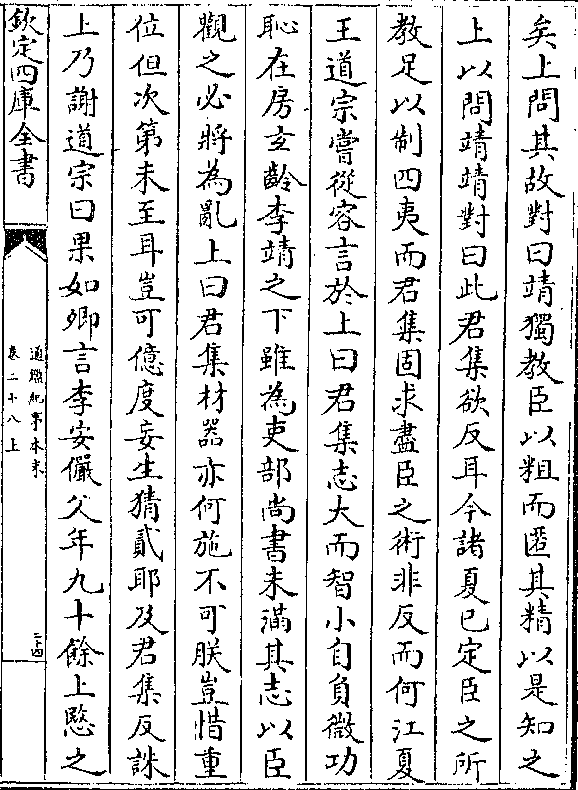 矣上問其故對曰靖獨教臣以粗而匿其精以是知之
上以問靖靖對曰此君集欲反耳今諸夏已定臣之所
教足以制四夷而君集固求盡臣之術非反而何江夏
王道宗嘗從容言於上曰君集志大而智小自負微功
恥在房玄齡李靖之下雖為吏部尚書未滿其志以臣
觀之必將為亂上曰君集材器亦何施不可朕豈惜重
位但次第未至耳豈可億度妄生猜貳耶及君集反誅
上乃謝道宗曰果如卿言李安儼父年九十餘上愍之
欽定四庫全書
通鑑紀事本末
卷二十八上
二十四